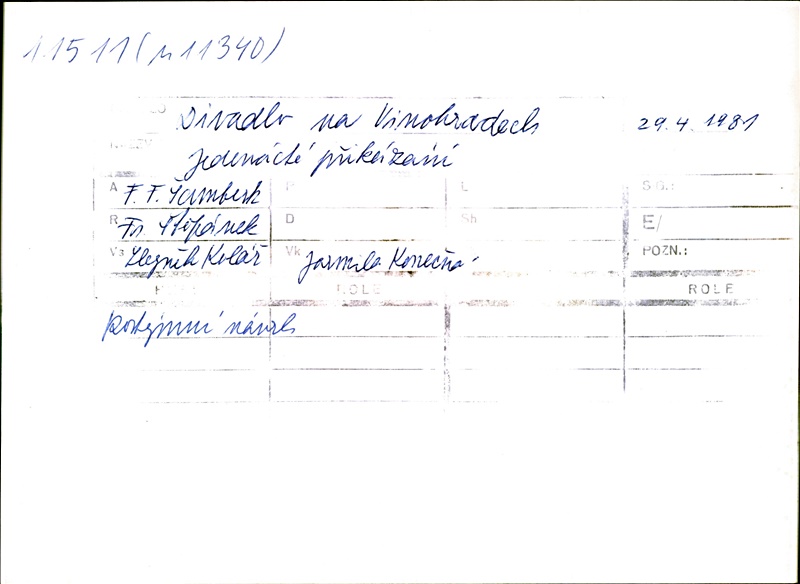 1.1511 (n 11340)
Divadlo na Vinohradech 29.4.1981
Jedenácté přikázání
A F. F. Šamberk P L SIG.:
R Fr. Štěpánek D Sh E/
Vs Zbyněk Kolář Vk Jarmila Konečná POZN.:
ROLE ROLE
Kostýmní návrh